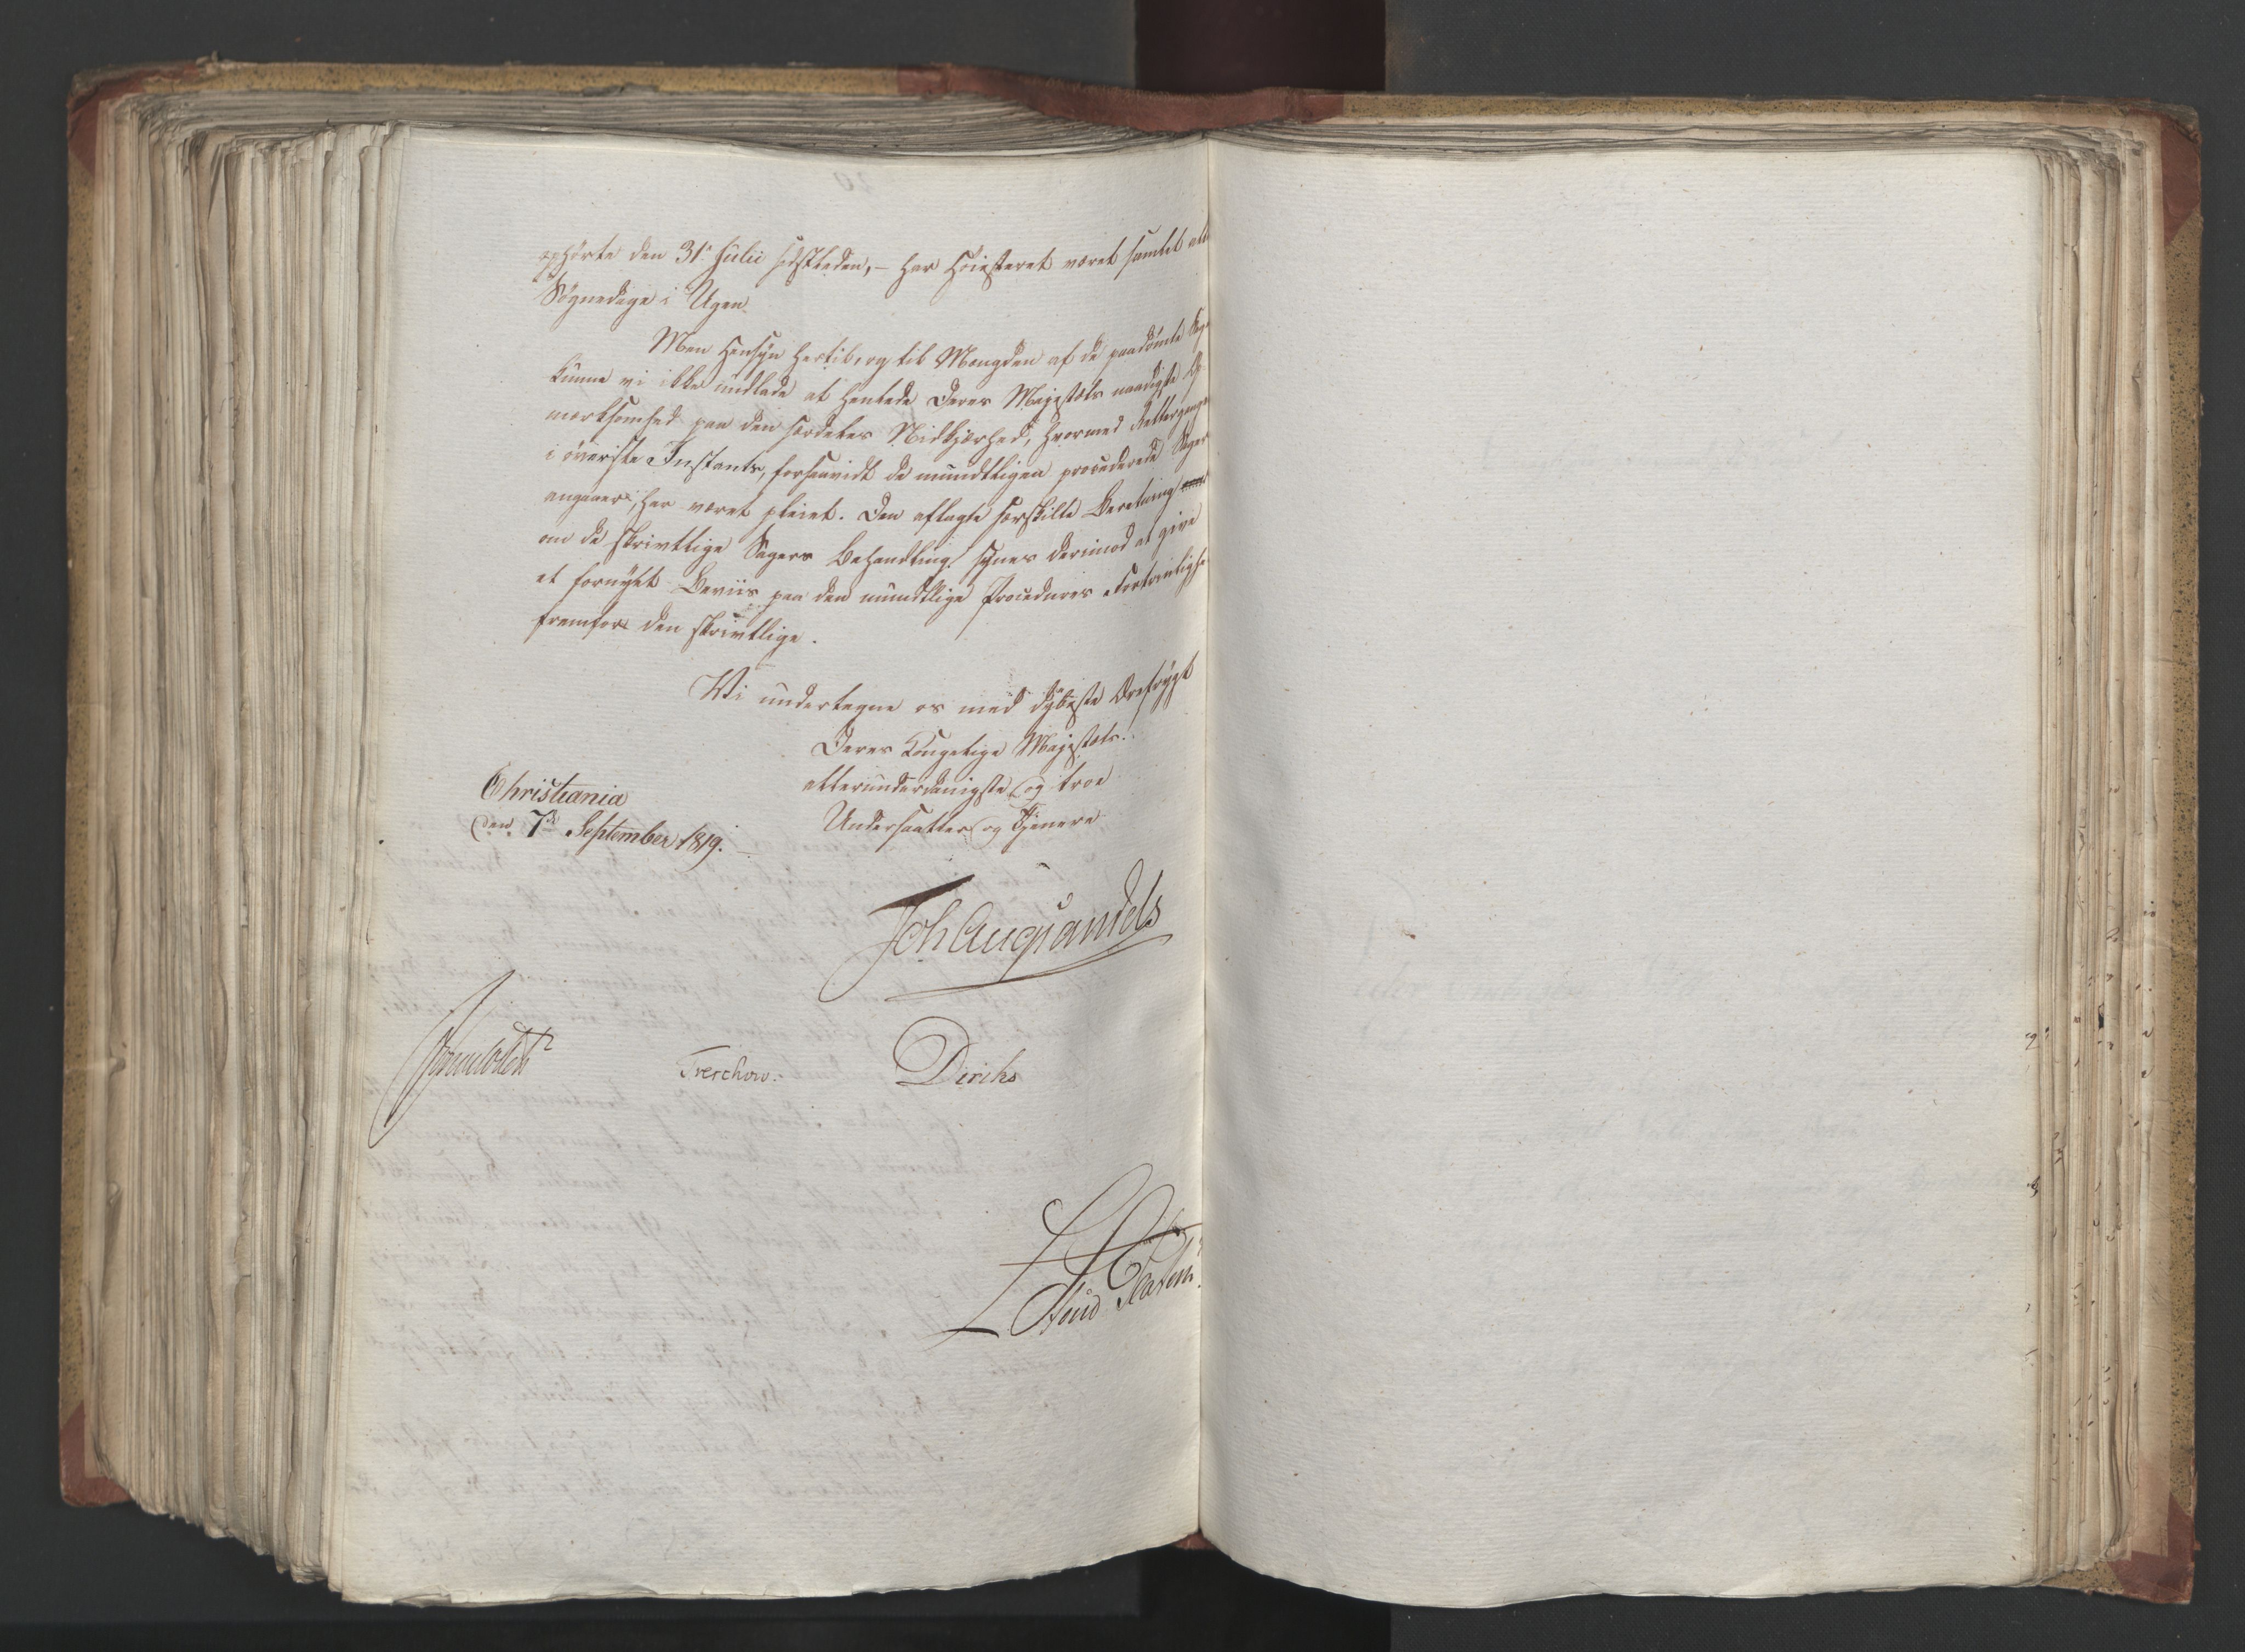 ophørte den 31te Julii sidstleden, – har Høiesteret været samlet alle
Søgnedage i Ugen.
Men Hensyn hertil, og til Mængden af de paadømte Sage
kunne vi ikke undlade at henlede Deres Majestæts naadigste Op-
mærksomhed paa den særdeles Nidkjærhed, hvormed Rettergangen
i øverste Instants, forsaavidt de mundtligen procederede Sager
angaaer, har været pleiet. Den aflagte særskilte Beretning
om de skrivtlige Sagers Behandling synes derimod at give
et fornyet Beviis paa den mundtlige Procedures Fortrinlighed
fremfor den skrivtlige.
Vi undertegne os med dybeste Ærefrygt
Deres Kongelige Majestæts.
allerunderdanigste og troe
Undersaatter og Tjenere
Christiania
den 7de September 1819.
Joh Aug Sandels
Sommerhielm
Treschow.
Diriks